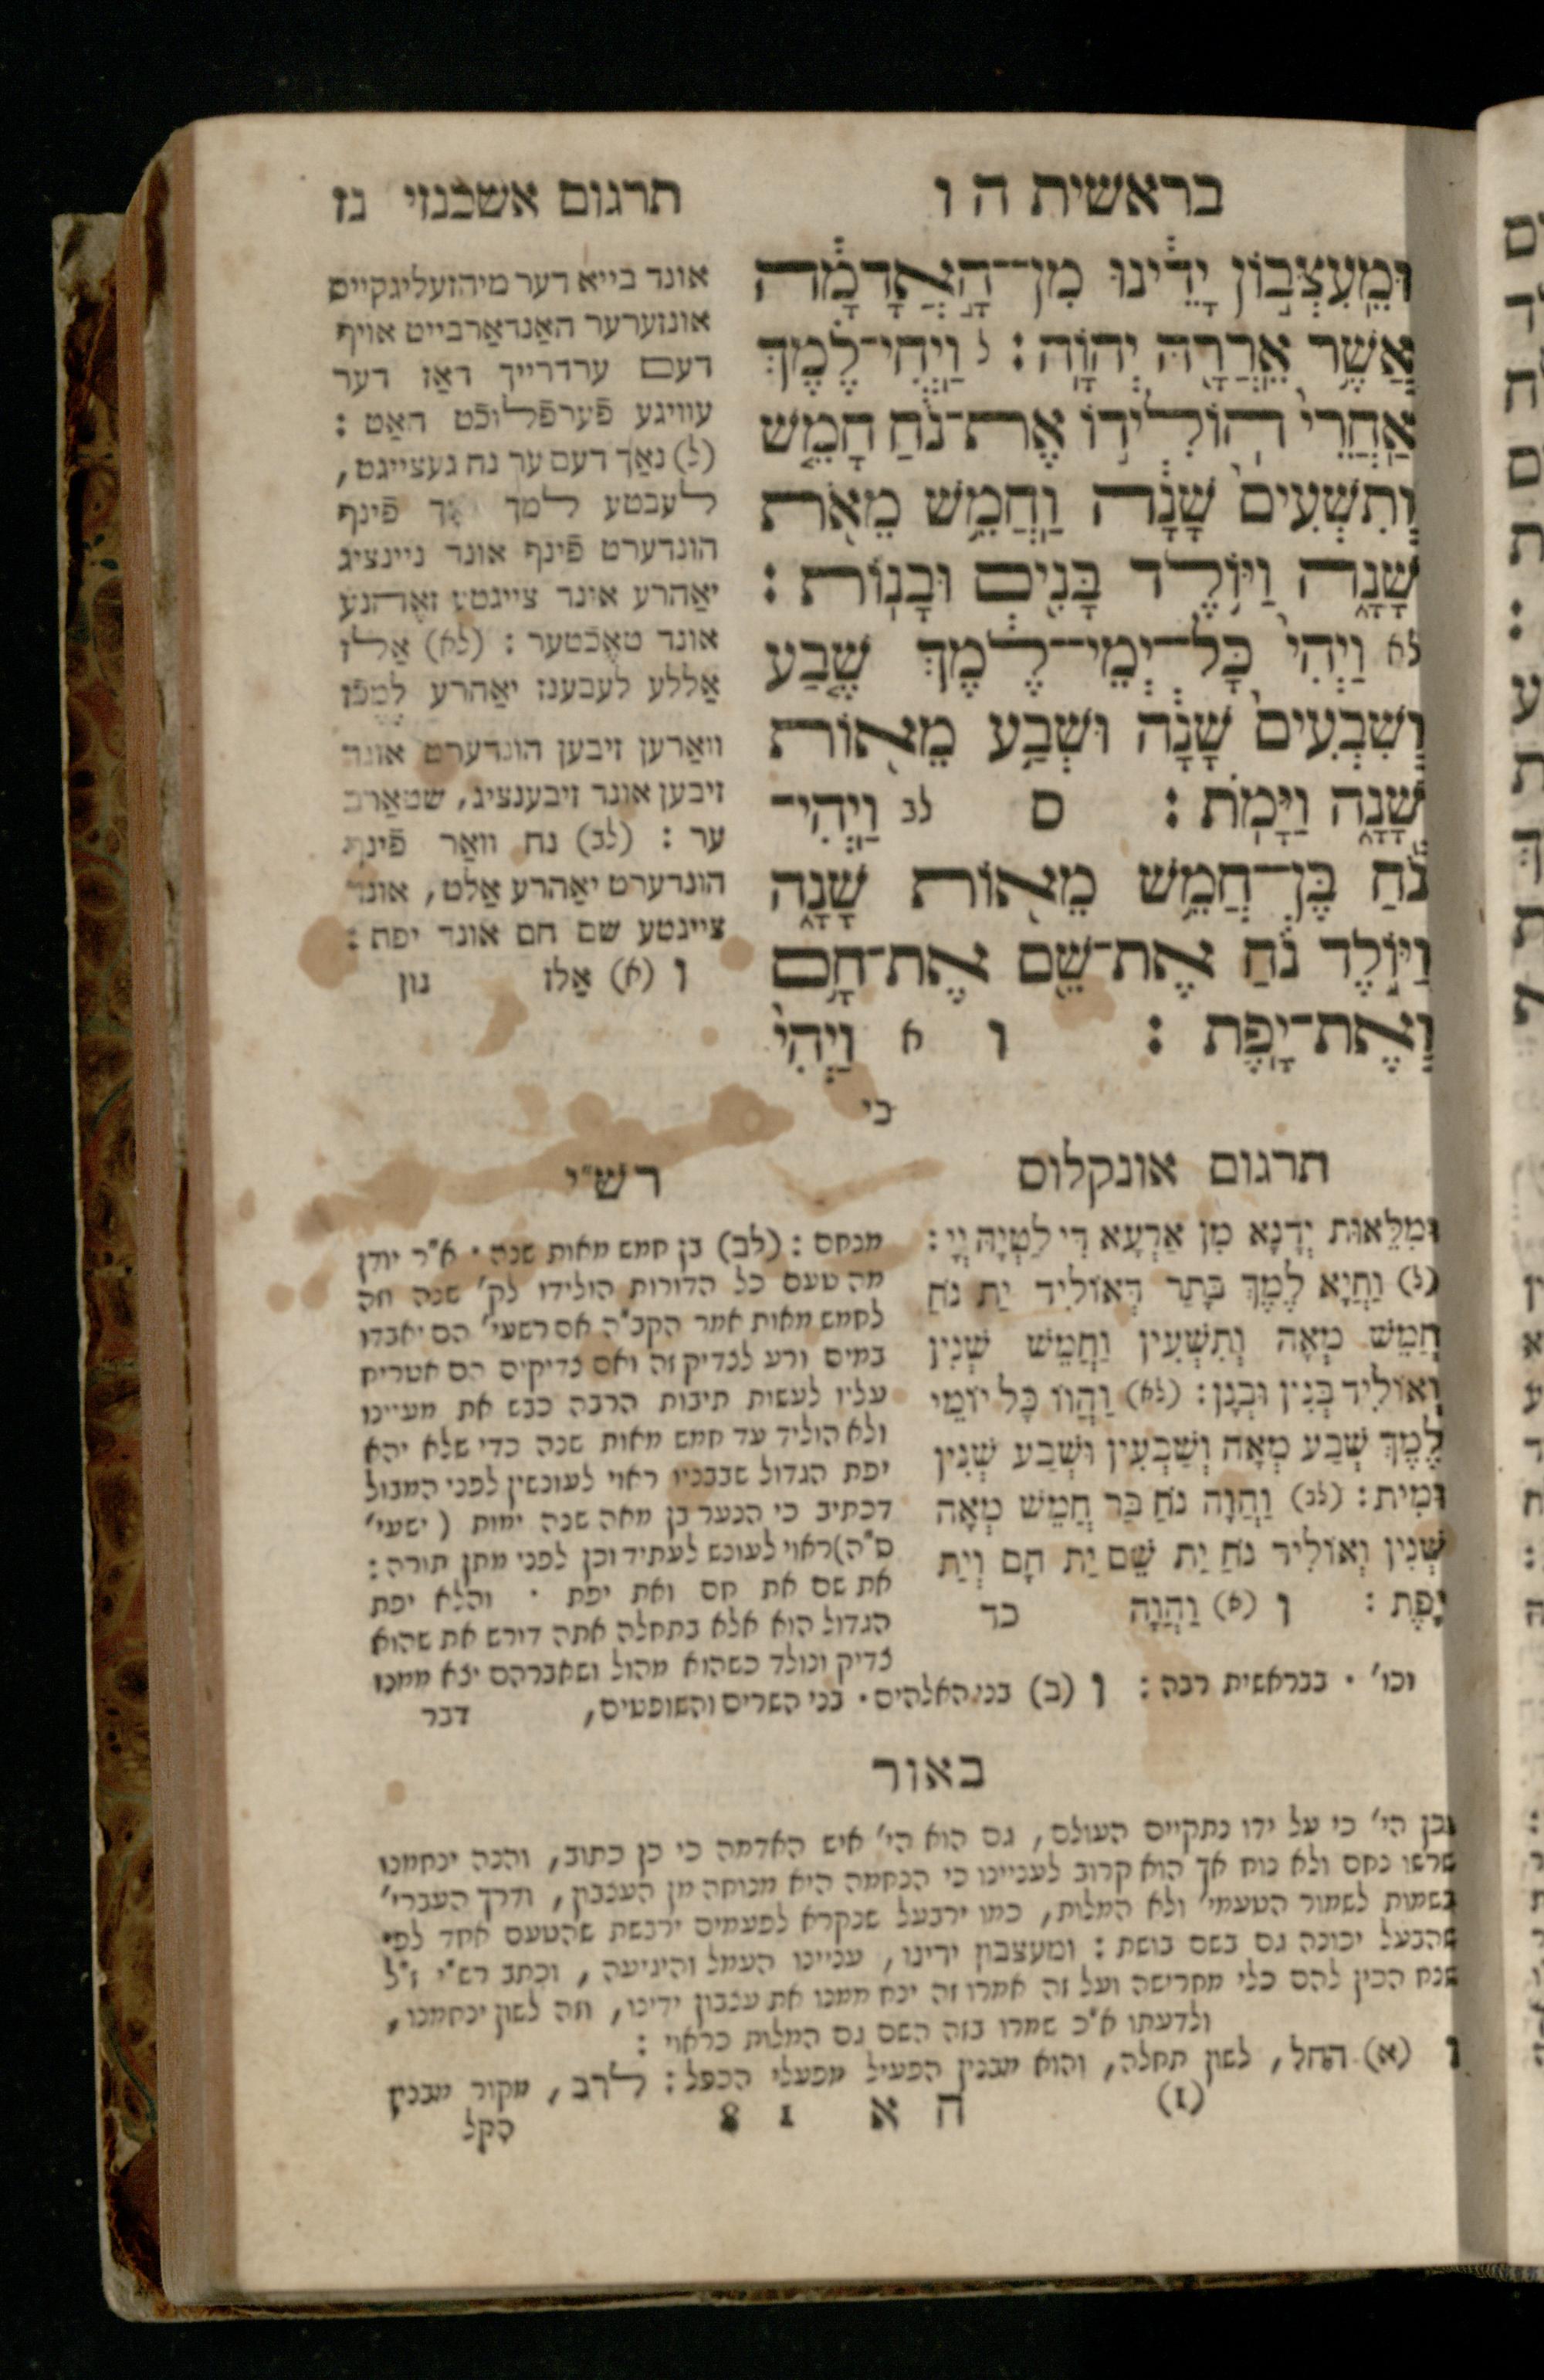 בראשית ה ו
תרגום אשכנזי נז
וּמֵעִצְּבוֹן יָדֵינוּ מִן־הָאֲדָמָה
אֲשֶׁר אֵרֲרָהּ יְהוָֹה : ל וַיְחִי־לֶמֶךְ
אַחֲרֵי הוֹלִידוֹ אֶת־נֹחַ חָמֵשׁ
וְתִשְׁעִים שָׁנָה וַחֲמֵשׁ מֵאֹת
שָׁנָה וַיּוֹלֶד בָּנִים וּבָנוֹת :
לא וַיְהִי כָּל־יְמֵי־לֶמֶךְ שֶׁבַע
וְשִׁבְעִים שָׁנָה וּשְׁבַע מֵאוֹת
שָׁנָה וַיָּמֹת : ס לב וַיְהִי־
נֹחַ בֶּן־חֲמֵשׁ מֵאוֹת שָׁנָה
וַיּוֹלֶד נֹחַ אֶת־שֵׁם אֶת־חָם
וְאֶת־יָפֶת : ו א וַיְהִי
כי
אונד בייא דער מיהזעליגקייט
אונזערער האַנדאַרבייט אויף
דעם ערדרייך דאַז דער
עוויגע פֿערפֿלוכֿט האַט :
(ל) נאַך דעם ער נח געצייגט,
לעבטע למך פֿינף
הונדערט פֿינף אונד ניינציג
יאַהרע אונד צייגטע זאֶהנע
אונד טאֶכֿטער : (לא) אַלז
אַללע לעבענז יאַהרע למכֿז
וואַרען זיבען הונדערט אונד
זיבען אונד זיבענציג, שטאַרב
ער : (לב) נח וואַר פֿינף
הונדערט יאַהרע אַלט, אונד
צייגטע שם חם אונד יפת :
ו (א) אַלז נון
תרגום אונקלוס
וּמִלֵּאוּת יְדָנָא מִן אַרְעָא דִּי לַטְיָהּ יְיָ :
(ל) וַחֲיָא לֶמֶךְ בָּתַר דְּאוֹלִיד יַת נֹחַ
חֲמֵשׁ מְאָה וְתִשְׁעִין וַחֲמֵשׁ שְׁנִין
וְאוֹלִיד בְּנִין וּבְנָן : (לא) וַהֲווֹ כָּל יוֹמֵי
לֶמֶךְ שְׁבַע מְאָה וְשַׁבְעִין וּשְׁבַע שְׁנִין
וּמִית : (לב) וַהֲוָה נֹחַ בַּר חֲמֵשׁ מְאָה
שְׁנִין וְאוֹלִיד נֹחַ יַת שֵׁם יַת חָם וְיַת
יָפֶת : ו (א) וַהֲוָה כד
רש״י
מנחם : (לב) בן חמש מאות שנה · א״ר יודן
מה טעם כל הדורות הולידו לק׳ שנה וזה
לחמש מאות אמר הקב״ה אם רשעי׳ הם יאבדו
במים ורע לצדיק זה ואם צדיקים הם אטריח
עליו לעשות תיבות הרבה כבש את מעיינו
ולא הוליד עד חמש מאות שנה כדי שלא יהא
יפת הגדול שבבניו ראוי לעונשין לפני המבול
דכתיב כי הנער בן מאה שנה ימות ( ישעי׳
ס״ה) ראוי לעונש לעתיד וכן לפני מתן תורה :
את שם את חם ואת יפת · והלא יפת
הגדול הוא אלא בתחלה אתה דורש את שהוא
צדיק ונולד כשהוא מהול ושאברהם יצא ממנו
וכו׳ · בבראשית רבה : ו (ב) בני האלהים · בני השרים והשופטים, דבר
באור
ובן הי׳ כי על ידו נתקיים העולם, גם הוא הי׳ איש האדמה כי כן כתוב, והנה ינחמנו
שרשו נחם ולא נוח אך הוא קרוב לעניינו כי הנחמה היא מנוחה מן העצבון, ודרך העברי׳
בשמות לשמור הטעמי׳ ולא המלות, כמו ירבעל שנקרא לפעמים ירבשת שהטעם אחד לפי
שהבעל יכונה גם בשם בושת : ומעצבון ידינו, עניינו העמל והיגיעה, וכתב רש״י ז״ל
שנח הכין להם כלי מחרישה ועל זה אמרו זה ינח ממנו את עצבון ידינו, וזה לשון ינחמנו,
ולדעתו א״כ שמרו בזה השם גם המלות כראוי :
ו (א) החל, לשון תחלה, והוא מבנין הפעיל מפעלי הכפל : לרב, מקור מבנין
(I) ה א 1 8 הקל